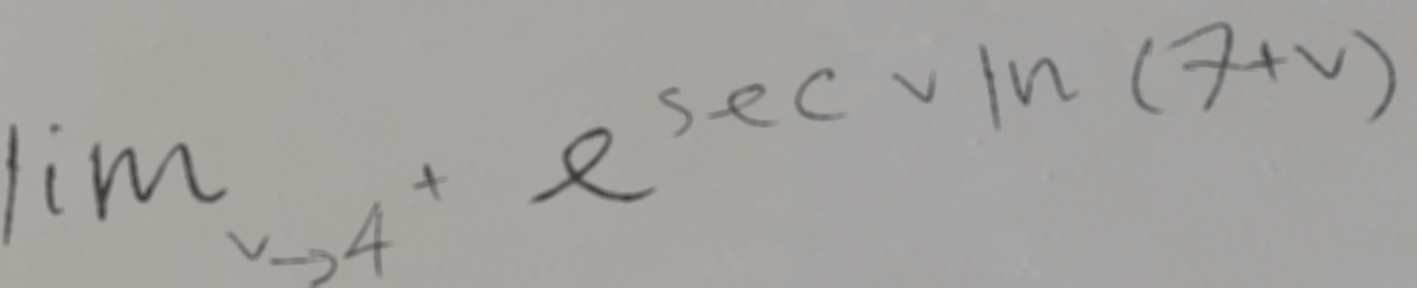 lim_{v→4^+} e^{sec v ln (7+v)}